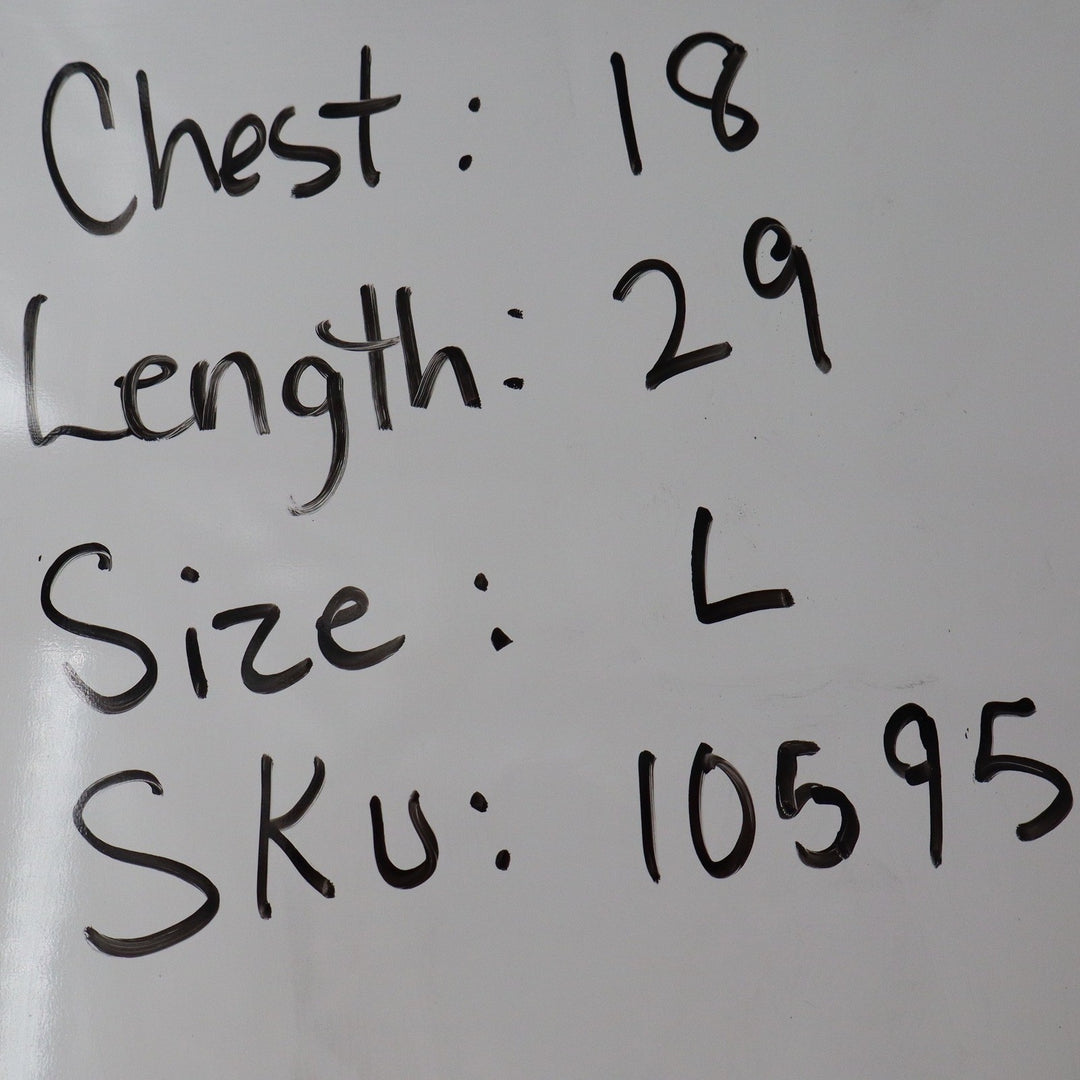 Chest: 18
Length: 29
Size: L
SKU: 10595